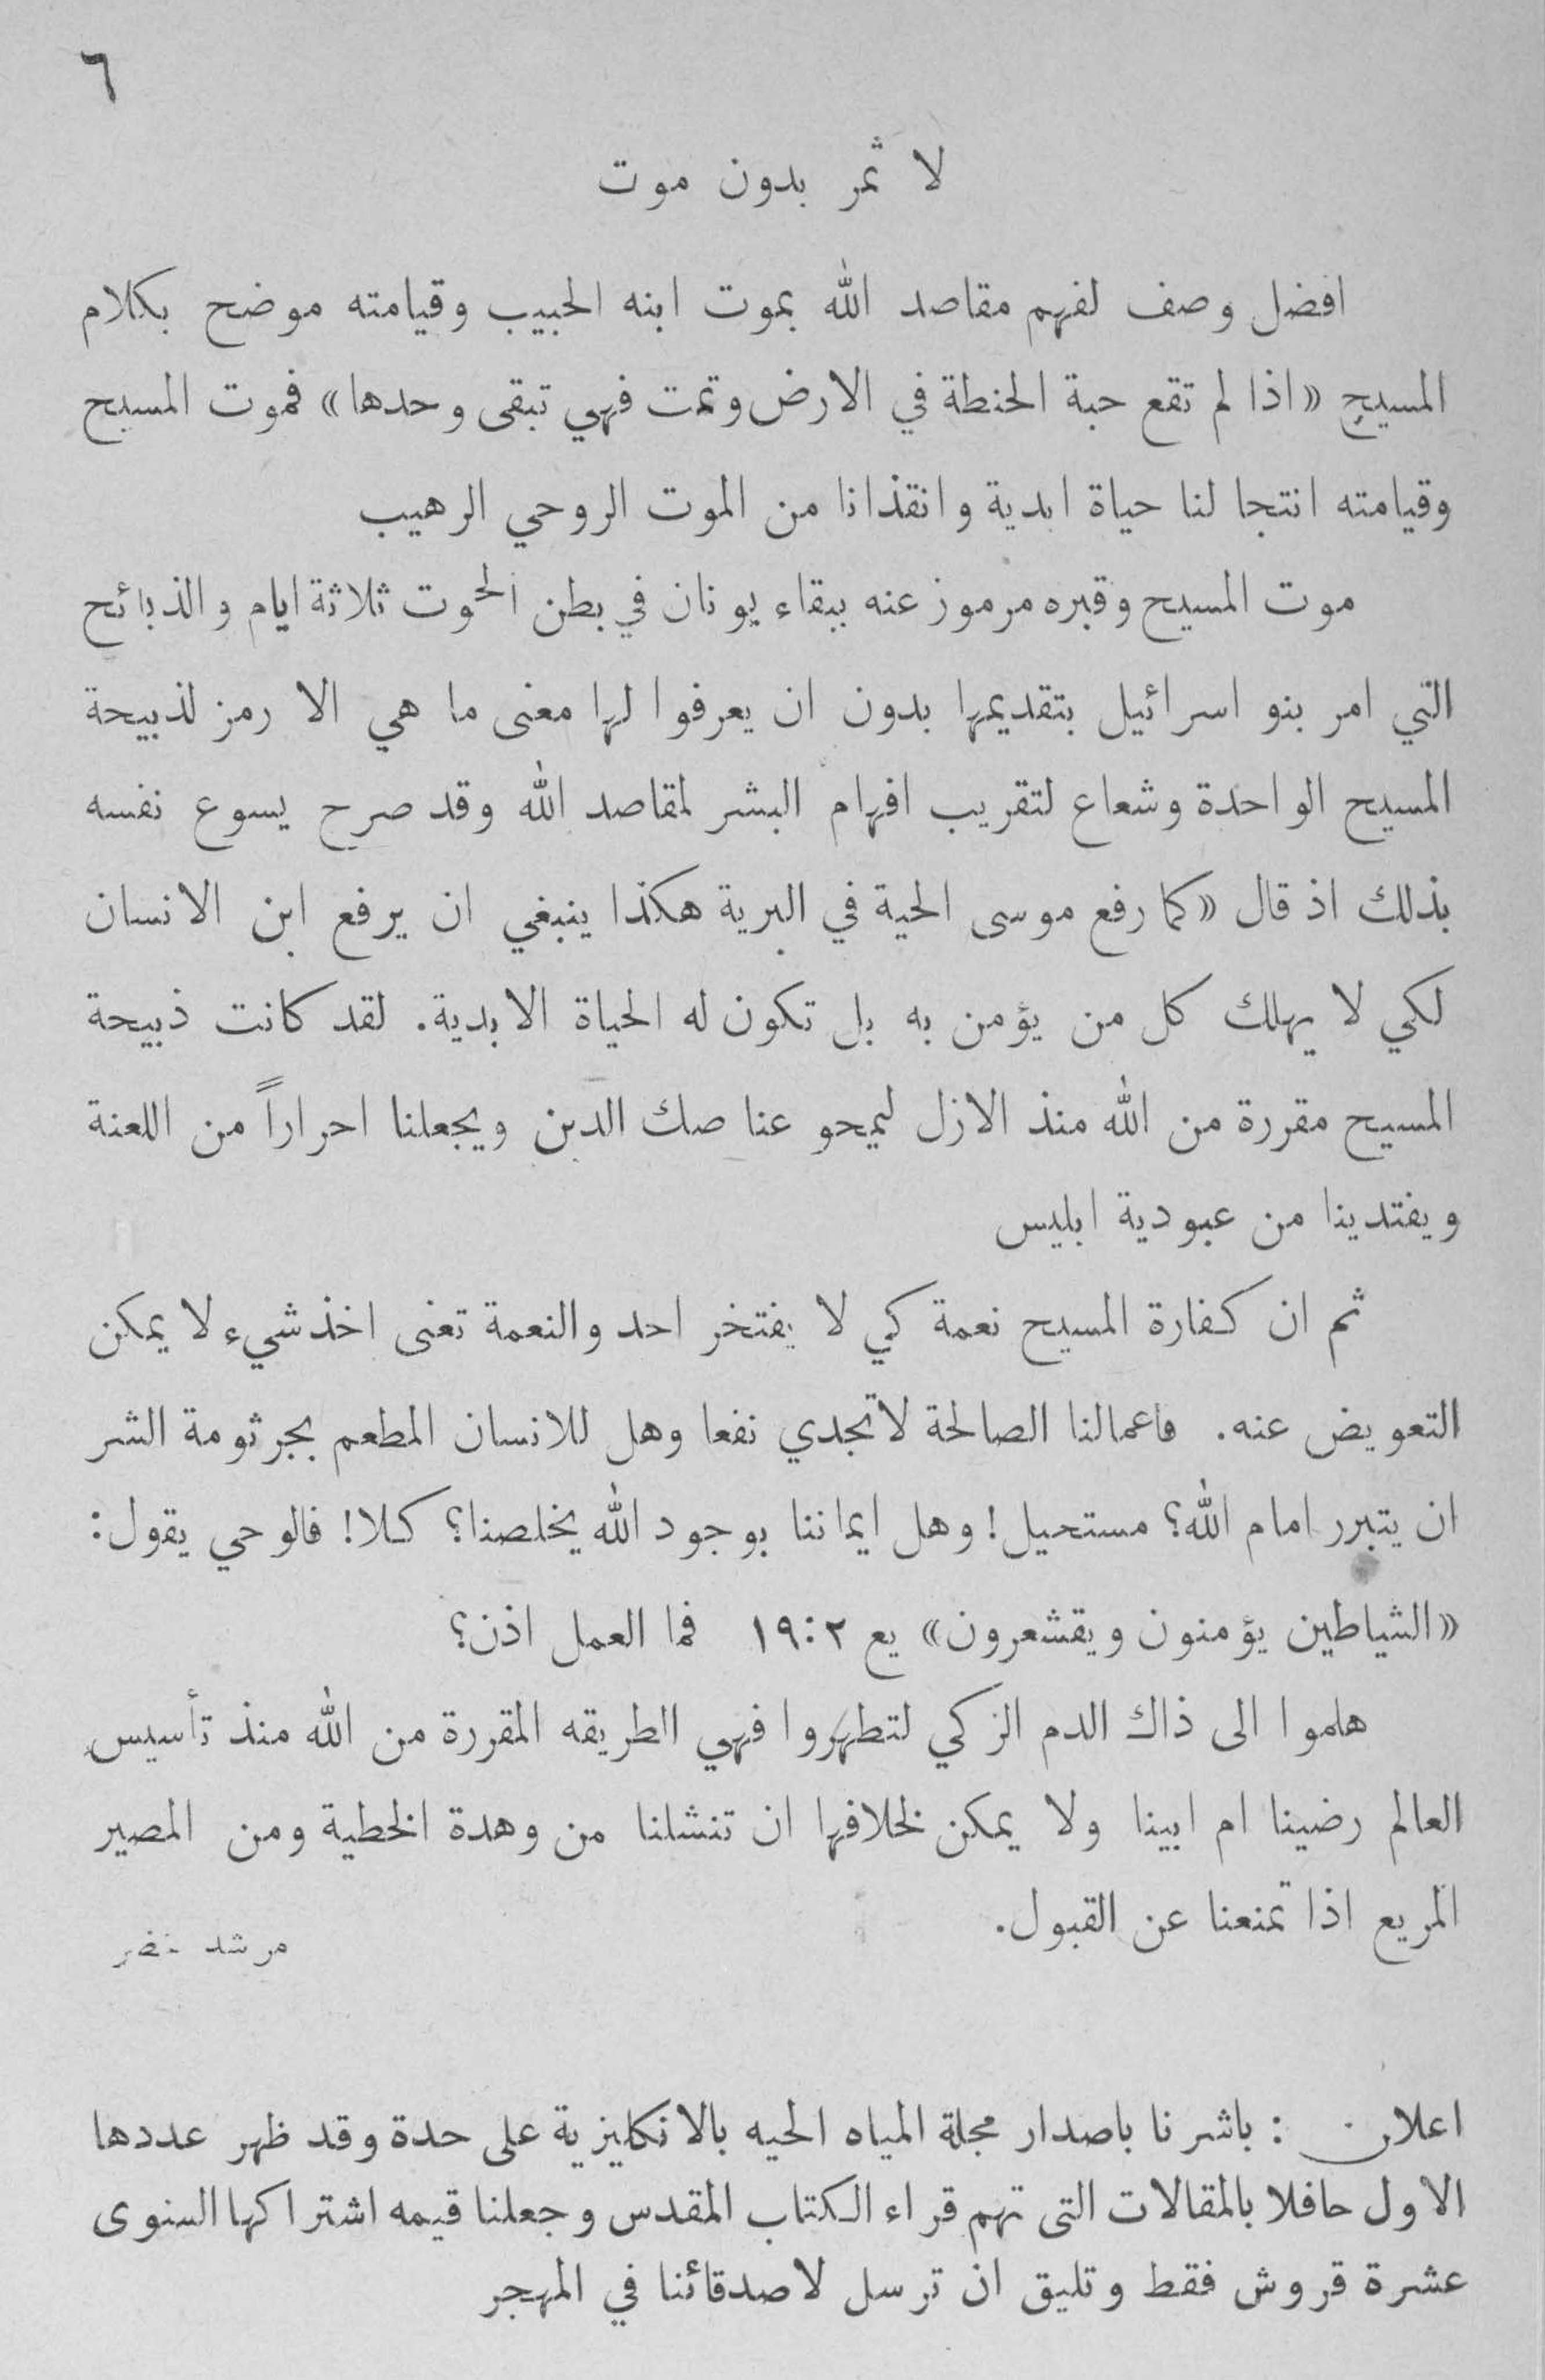 ٦
لا ثمر بدون موت
افضل وصف لفهم مقاصد الله بموت ابنه الحبيب وقيامته موضح بكلام
المسيح «اذا لم تقع حبة الحنطة في الارض وتمت فهي تبقى وحدها» فموت المسيح
وقيامته انتجا لنا حياة ابدية وانقذانا من الموت الروحي الرهيب
موت المسيح وقبره مرموز عنه ببقاء يونان في بطن الحوت ثلاثة ايام والذبائح
التي امر بنو اسرائيل بتقديمها بدون ان يعرفوا لها معنى ما هي الا رمز لذبيحة
المسيح الواحدة وشعاع لتقريب افهام البشر لمقاصد الله وقد صرح يسوع نفسه
بذلك اذ قال «كما رفع موسى الحية في البرية هكذا ينبغي ان يرفع ابن الانسان
لكي لا يهلك كل من يؤمن به بل تكون له الحياة الابدية. لقد كانت ذبيحة
المسيح مقررة من الله منذ الازل ليمحو عنا صك الدين ويجعلنا احراراً من اللعنة
ويفتدينا من عبودية ابليس
ثم ان كفارة المسيح نعمة كي لا يفتخر احد والنعمة تعنى اخذ شيء لا يمكن
التعويض عنه. فاعمالنا الصالحة لا تجدي نفعا وهل للانسان المطعم بجرثومة الشر
ان يتبرر امام الله؟ مستحيل! وهل ايماننا بوجود الله يخلصنا؟ كلا! فالوحي يقول:
«الشياطين يؤمنون ويقشعرون» يع ٢:١٩ فما العمل اذن؟
هلموا الى ذاك الدم الزكي لتطهروا فهي الطريقه المقررة من الله منذ تأسيس
العالم رضينا ام ابينا ولا يمكن لخلافها ان تنشلنا من وهدة الخطية ومن المصير
المريع اذا تمنعنا عن القبول.
مرشد
اعلان : باشرنا باصدار مجلة المياه الحيه بالانكليزية على حدة وقد ظهر عددها
الاول حافلا بالمقالات التى تهم قراء الكتاب المقدس وجعلنا قيمه اشتراكها السنوى
عشرة قروش فقط وتليق ان ترسل لاصدقائنا في المهجر